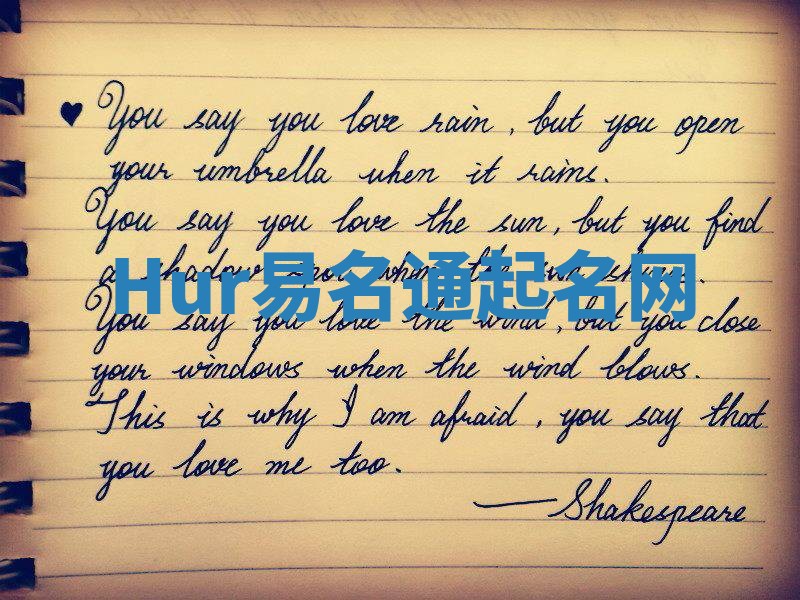 ♥ You say you love rain, but you open
your umbrella when it rains.
You say you love the sun, but you find
a shadow spot when the sun shines.
Hur易名通起名网
You say you love the wind, but you close
your windows when the wind blows.
This is why I am afraid, you say that
you love me too.
—Shakespeare